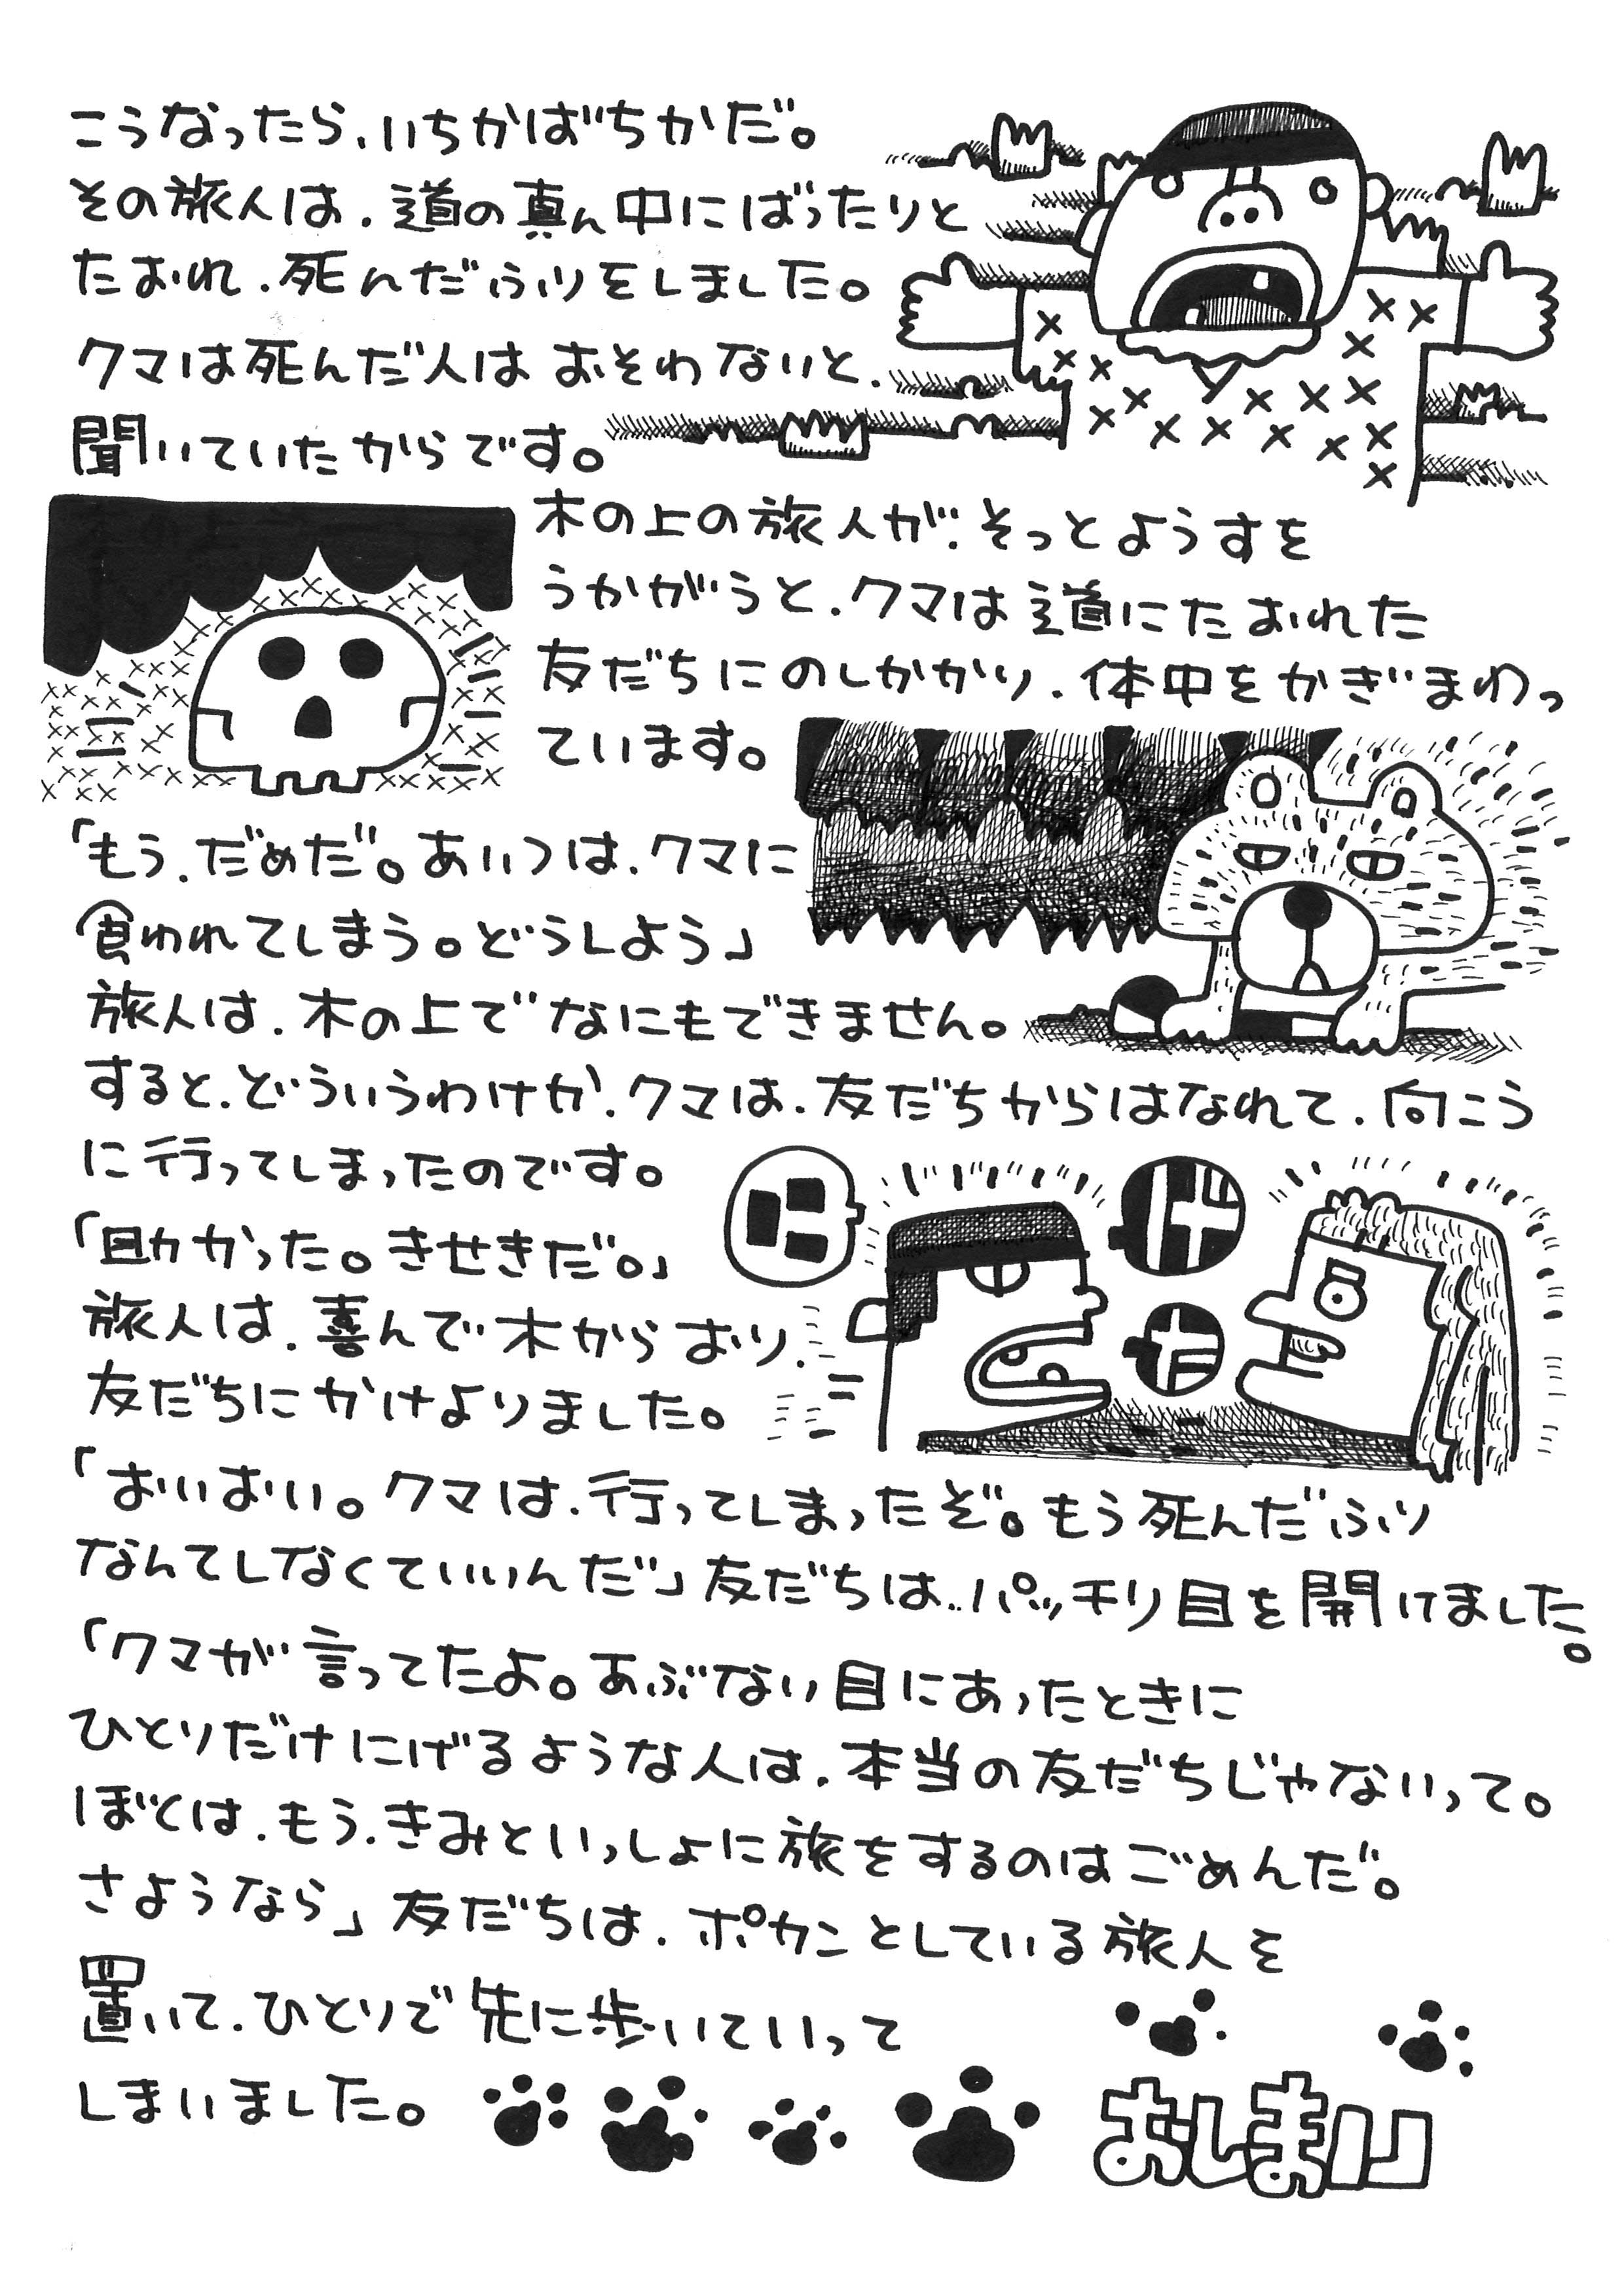 こうなったら、いちかばちかだ。
その旅人は、道の真ん中にばったりと
たおれ、死んだふりをしました。
クマは死んだ人はおそわないと、
聞いていたからです。
木の上の旅人が、そっとようすを
うかがうと、クマは道にたおれた
友だちにのしかかり、体中をかぎまわっ
ています。
「もう、だめだ。あいつは、クマに
食われてしまう。どうしよう」
旅人は、木の上でなにもできません。
すると、どういうわけか、クマは、友だちからはなれて、向こう
に行ってしまったのです。
「助かった。きせきだ。」
旅人は、喜んで木からおり、
友だちにかけよりました。
「おいおい。クマは、行ってしまったぞ。もう死んだふり
なんてしなくていいんだ」友だちは、パッチリ目を開けました。
「クマが言ってたよ。あぶない目にあったときに
ひとりだけにげるような人は、本当の友だちじゃないって。
ぼくは、もう、きみといっしょに旅をするのはごめんだ。
さようなら」友だちは、ポカンとしている旅人を
置いて、ひとりで先に歩いていって
しまいました。
おしまい